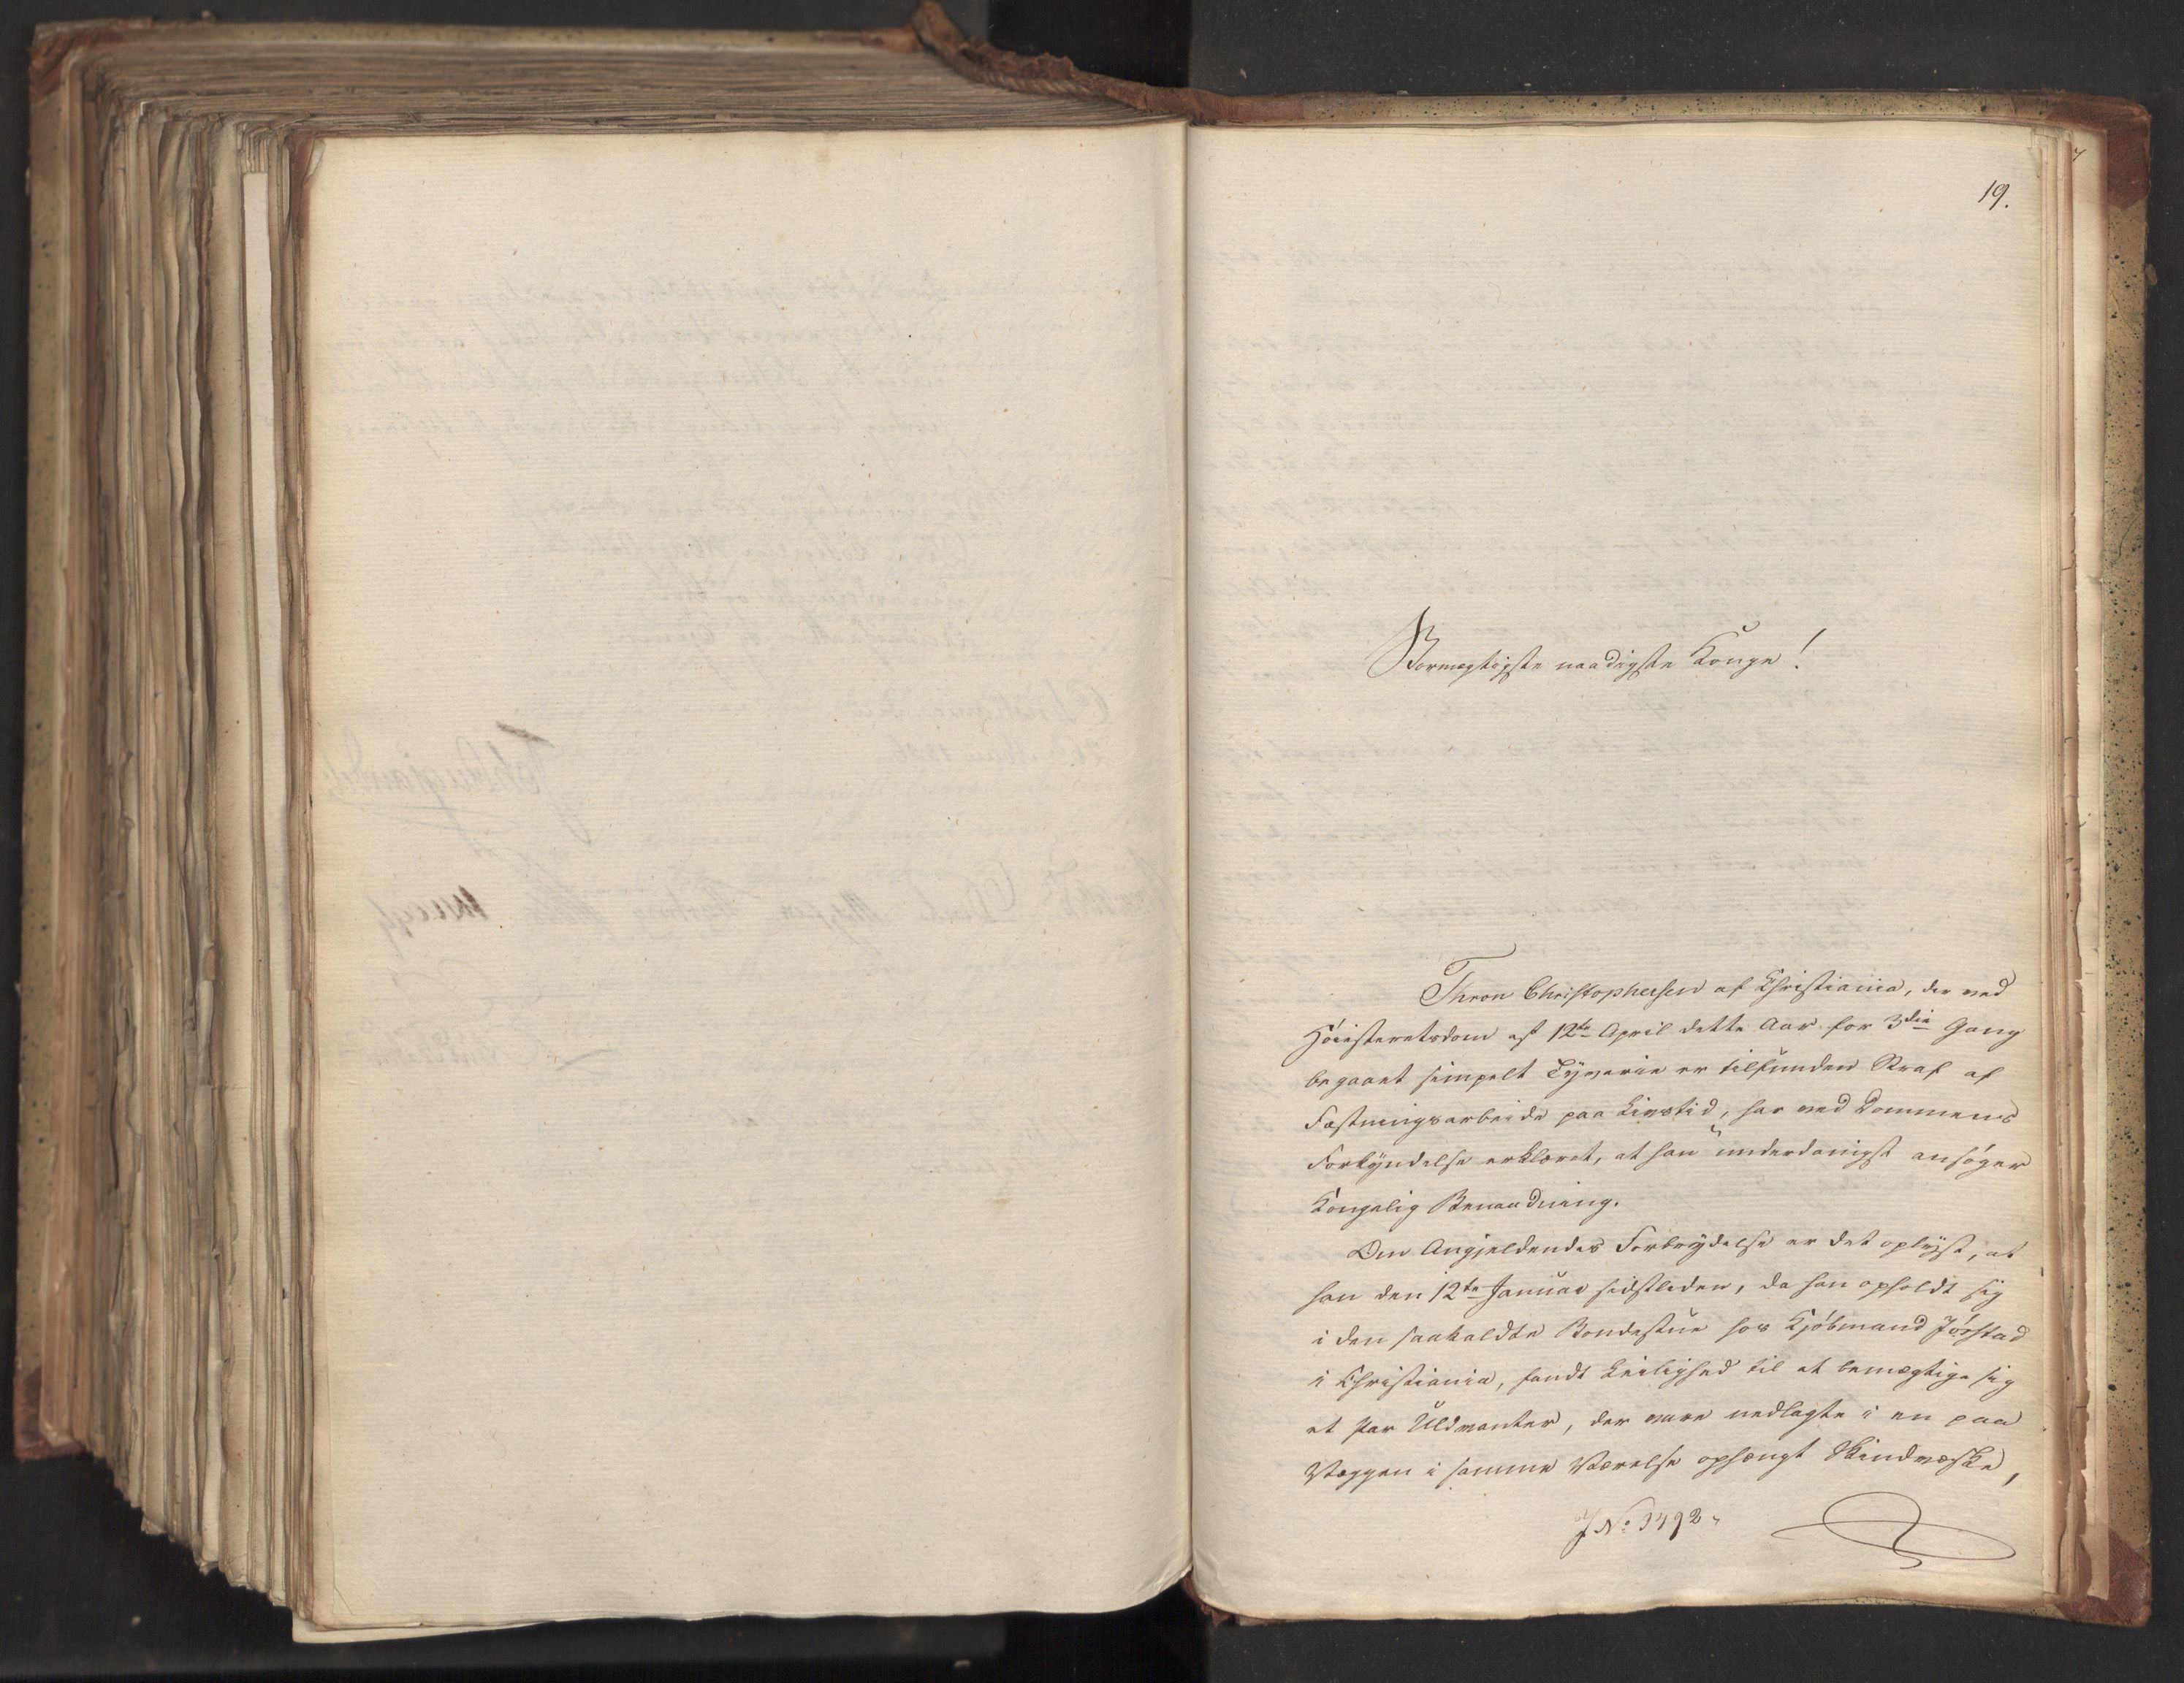 19.
Stormægtigste naadigste Konge!
Thron Christophersen af Christiania, der ved
Høiesteretsdom af 12te April dette Aar for 3die Gang
begaaet simpelt Tyverie er tilfunden Straf af
Fæstningsarbeide paa Livstid, har ved Dommens
Forkyndelse erklæret, at han underdanigst ansøger
Kongelig Benaadning.
Om Angjeldendes Forbrydelse er det oplyst, at
han den 12te Januar sidstleden, da han opholdt sig
i den saakaldte Bondestue hos Kjøbmand Jørstad
i Christiania, fandt Leilighed til at bemægtige sig
et Par Uldvanter, der vare nedlagte i en paa
Væggen i samme Værelse ophængt Skindvæske,
J No 3492.